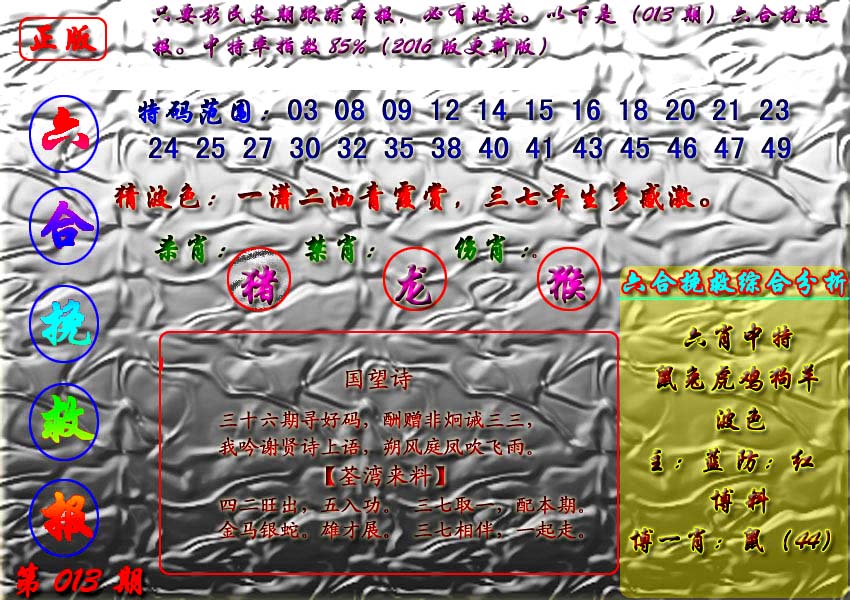 正版
只要彩民长期跟踪本报，必有收获。以下是（013 期）六合挽救
报。中特率指数 85%（2016 版更新版）
六合挽救报
第 013 期
特码范围：03 08 09 12 14 15 16 18 20 21 23
24 25 27 30 32 35 38 40 41 43 45 46 47 49
猜波色：一潇二洒青霞赏，三七平生多感激。
杀肖：猪 禁肖：龙 伤肖：猴
国望诗
三十六期寻好码，酬赠非炯诫三三，
我吟谢贤诗上语，朔风庭凤吹飞雨。
【荃湾来料】
四二旺出，五入功。 三七取一，配本期。
金马银蛇。雄才展。 三七相伴，一起走。
六合挽救综合分析
六肖中特
鼠兔虎鸡狗羊
波色
主：蓝防：红
博料
博一肖：鼠（44）